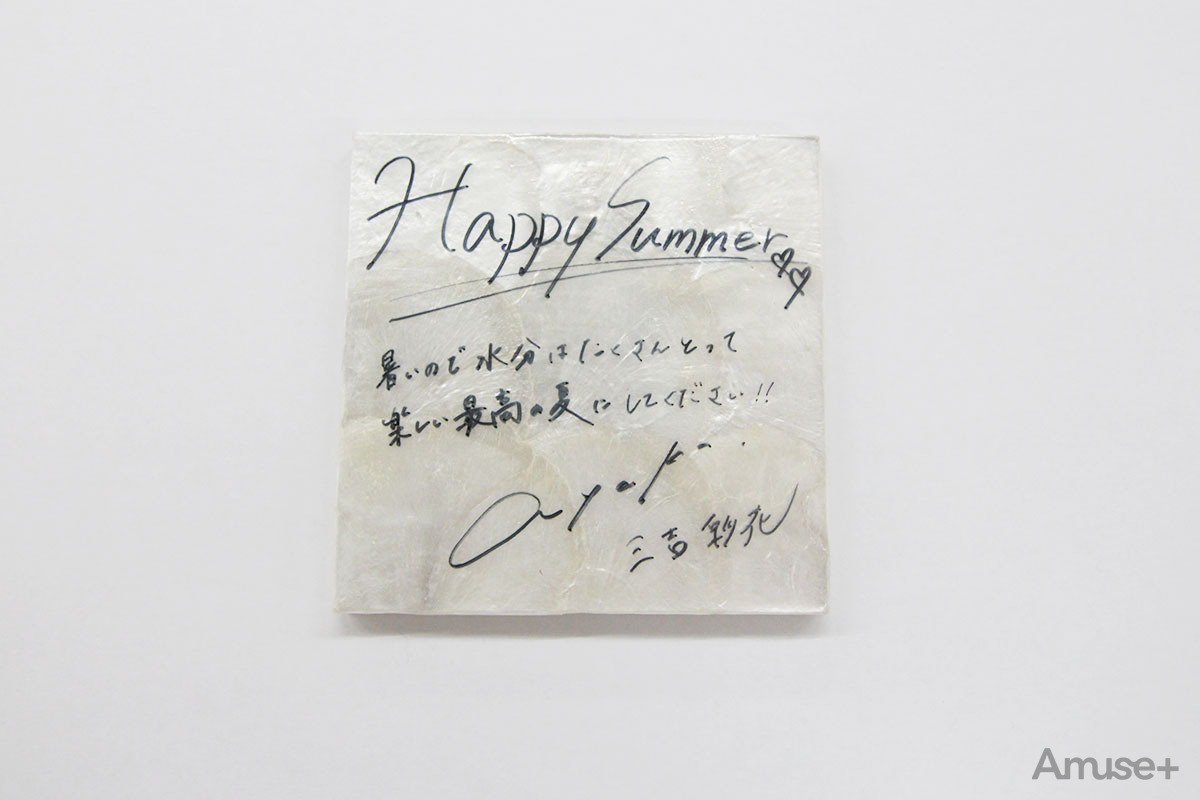 Happy Summer♡♡
暑いので水分はたくさんとって
楽しい最高の夏にしてください!!
ayaka..
三吉彩花
Amuse+